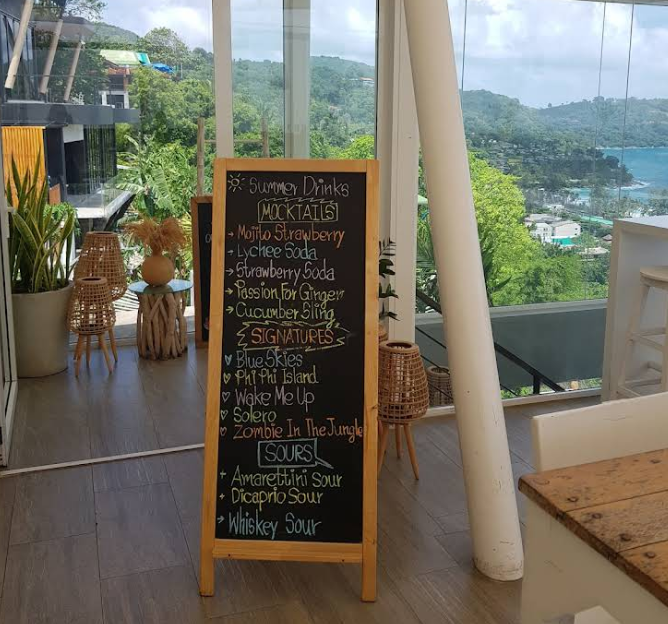 Summer Drinks
MOCKTAILS
Mojito Strawberry
Lychee Soda
Strawberry Soda
Passion For Ginger
Cucumber Sling
SIGNATURES
Blue Skies
Phi Phi Island
Wake Me Up
Solero
Zombie In The Jungle
SOURS
Amarettini Sour
Dicaprio Sour
Whiskey Sour